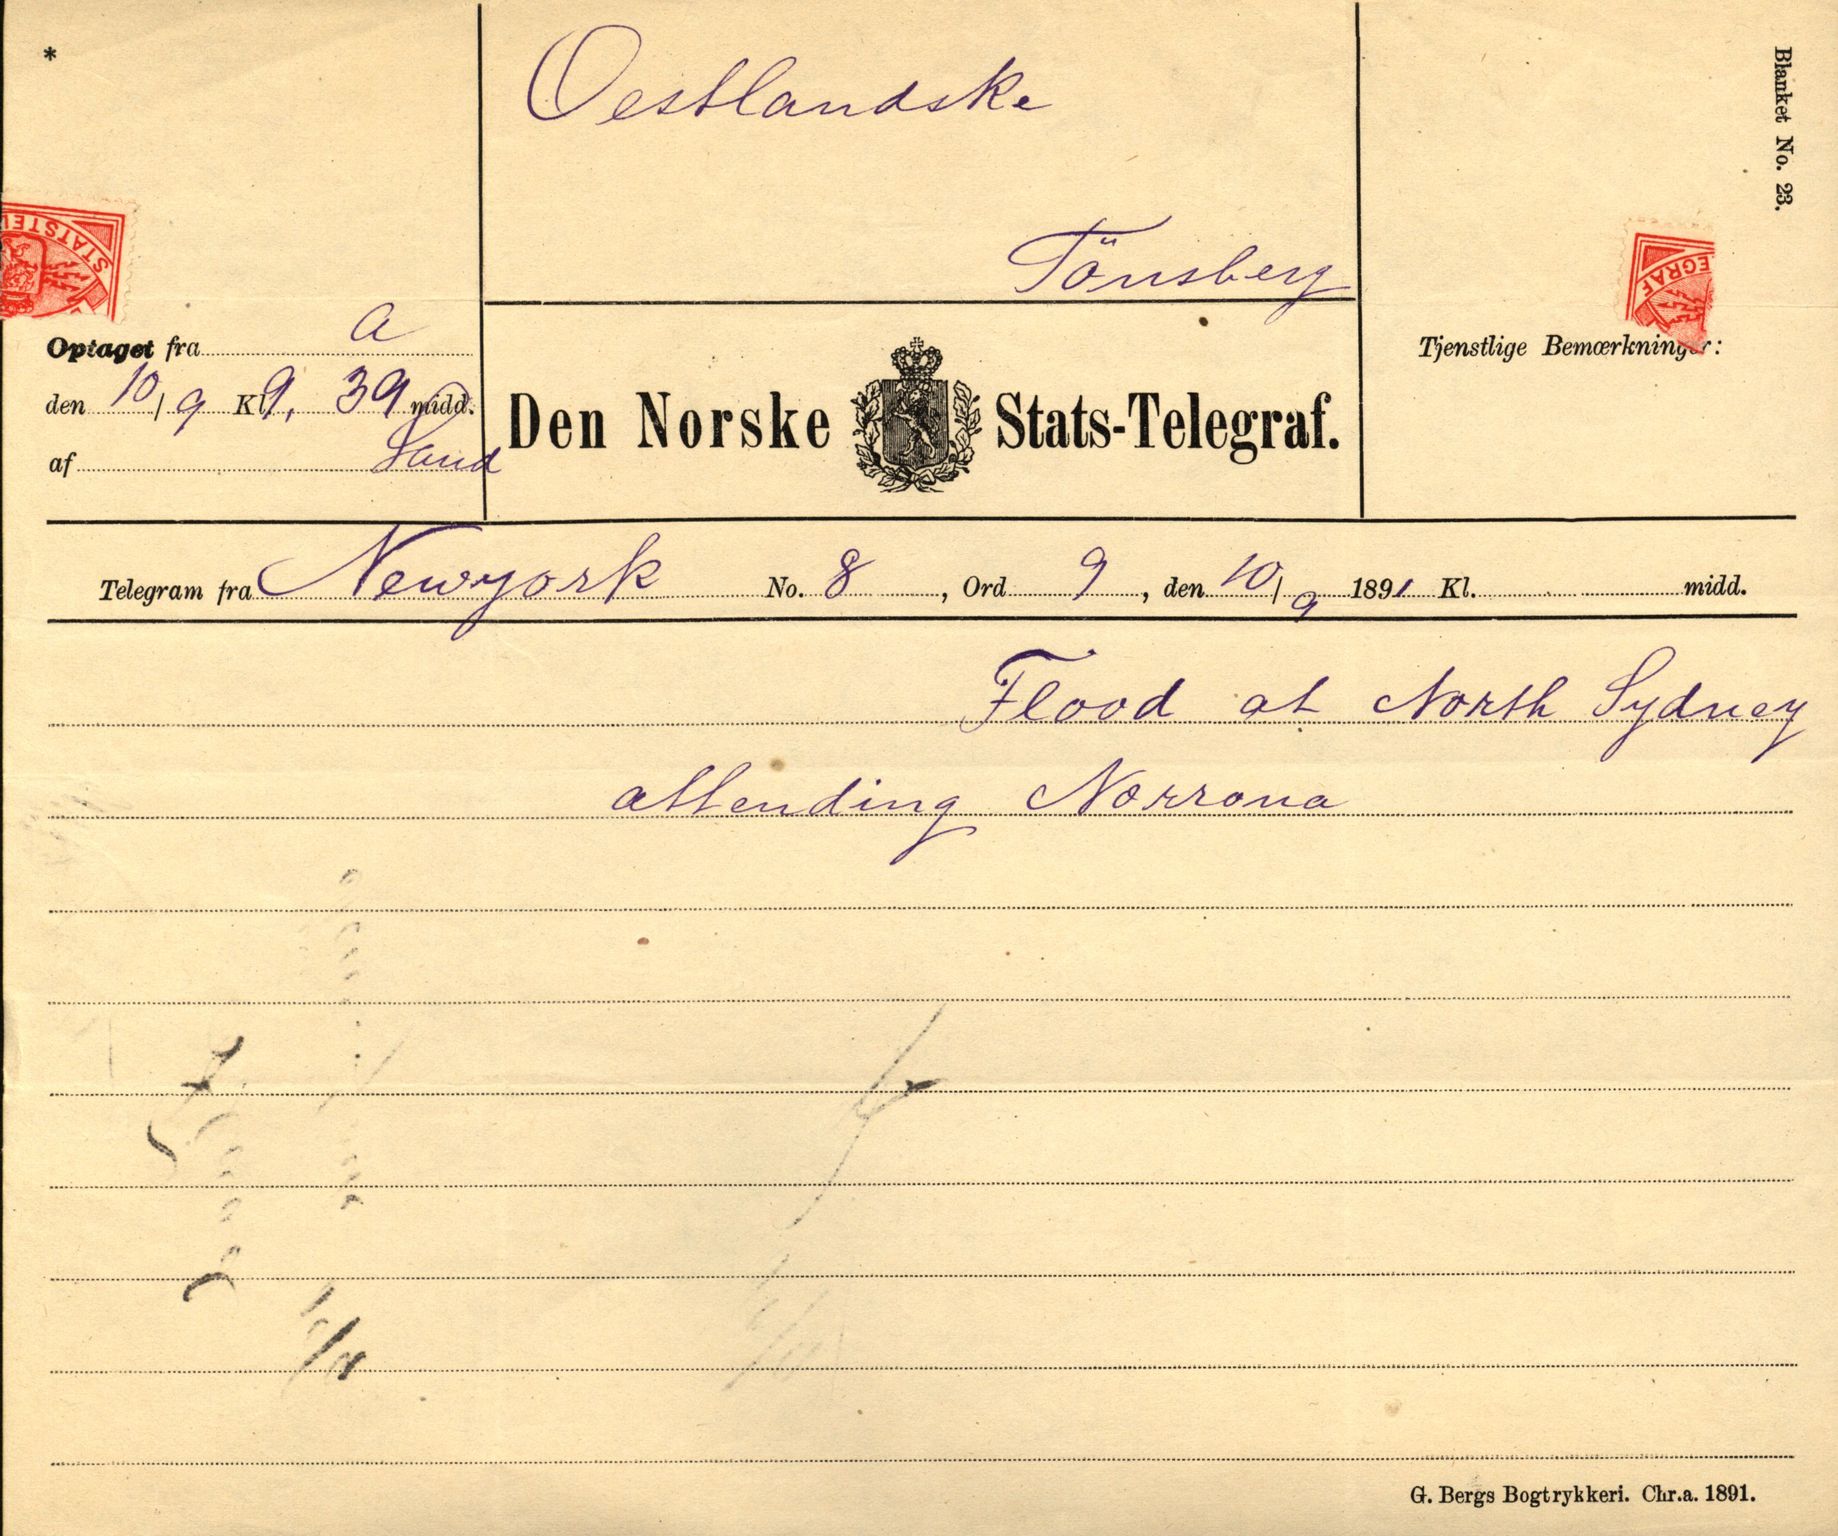 *
Oestlandske
Tönsberg
Blanket No. 23.
STATSTEL
EGRAF
Optaget fra a
den 10/9 Kl 9, 39 midd.
af Sand
Den Norske Stats-Telegraf.
Tjenstlige Bemærkninger:
Telegram fra Newyork No. 8, Ord 9, den 10/9 1891 Kl. midd.
Flood at North Sydney
attending Norrona
G. Bergs Bogtrykkeri. Chr.a. 1891.